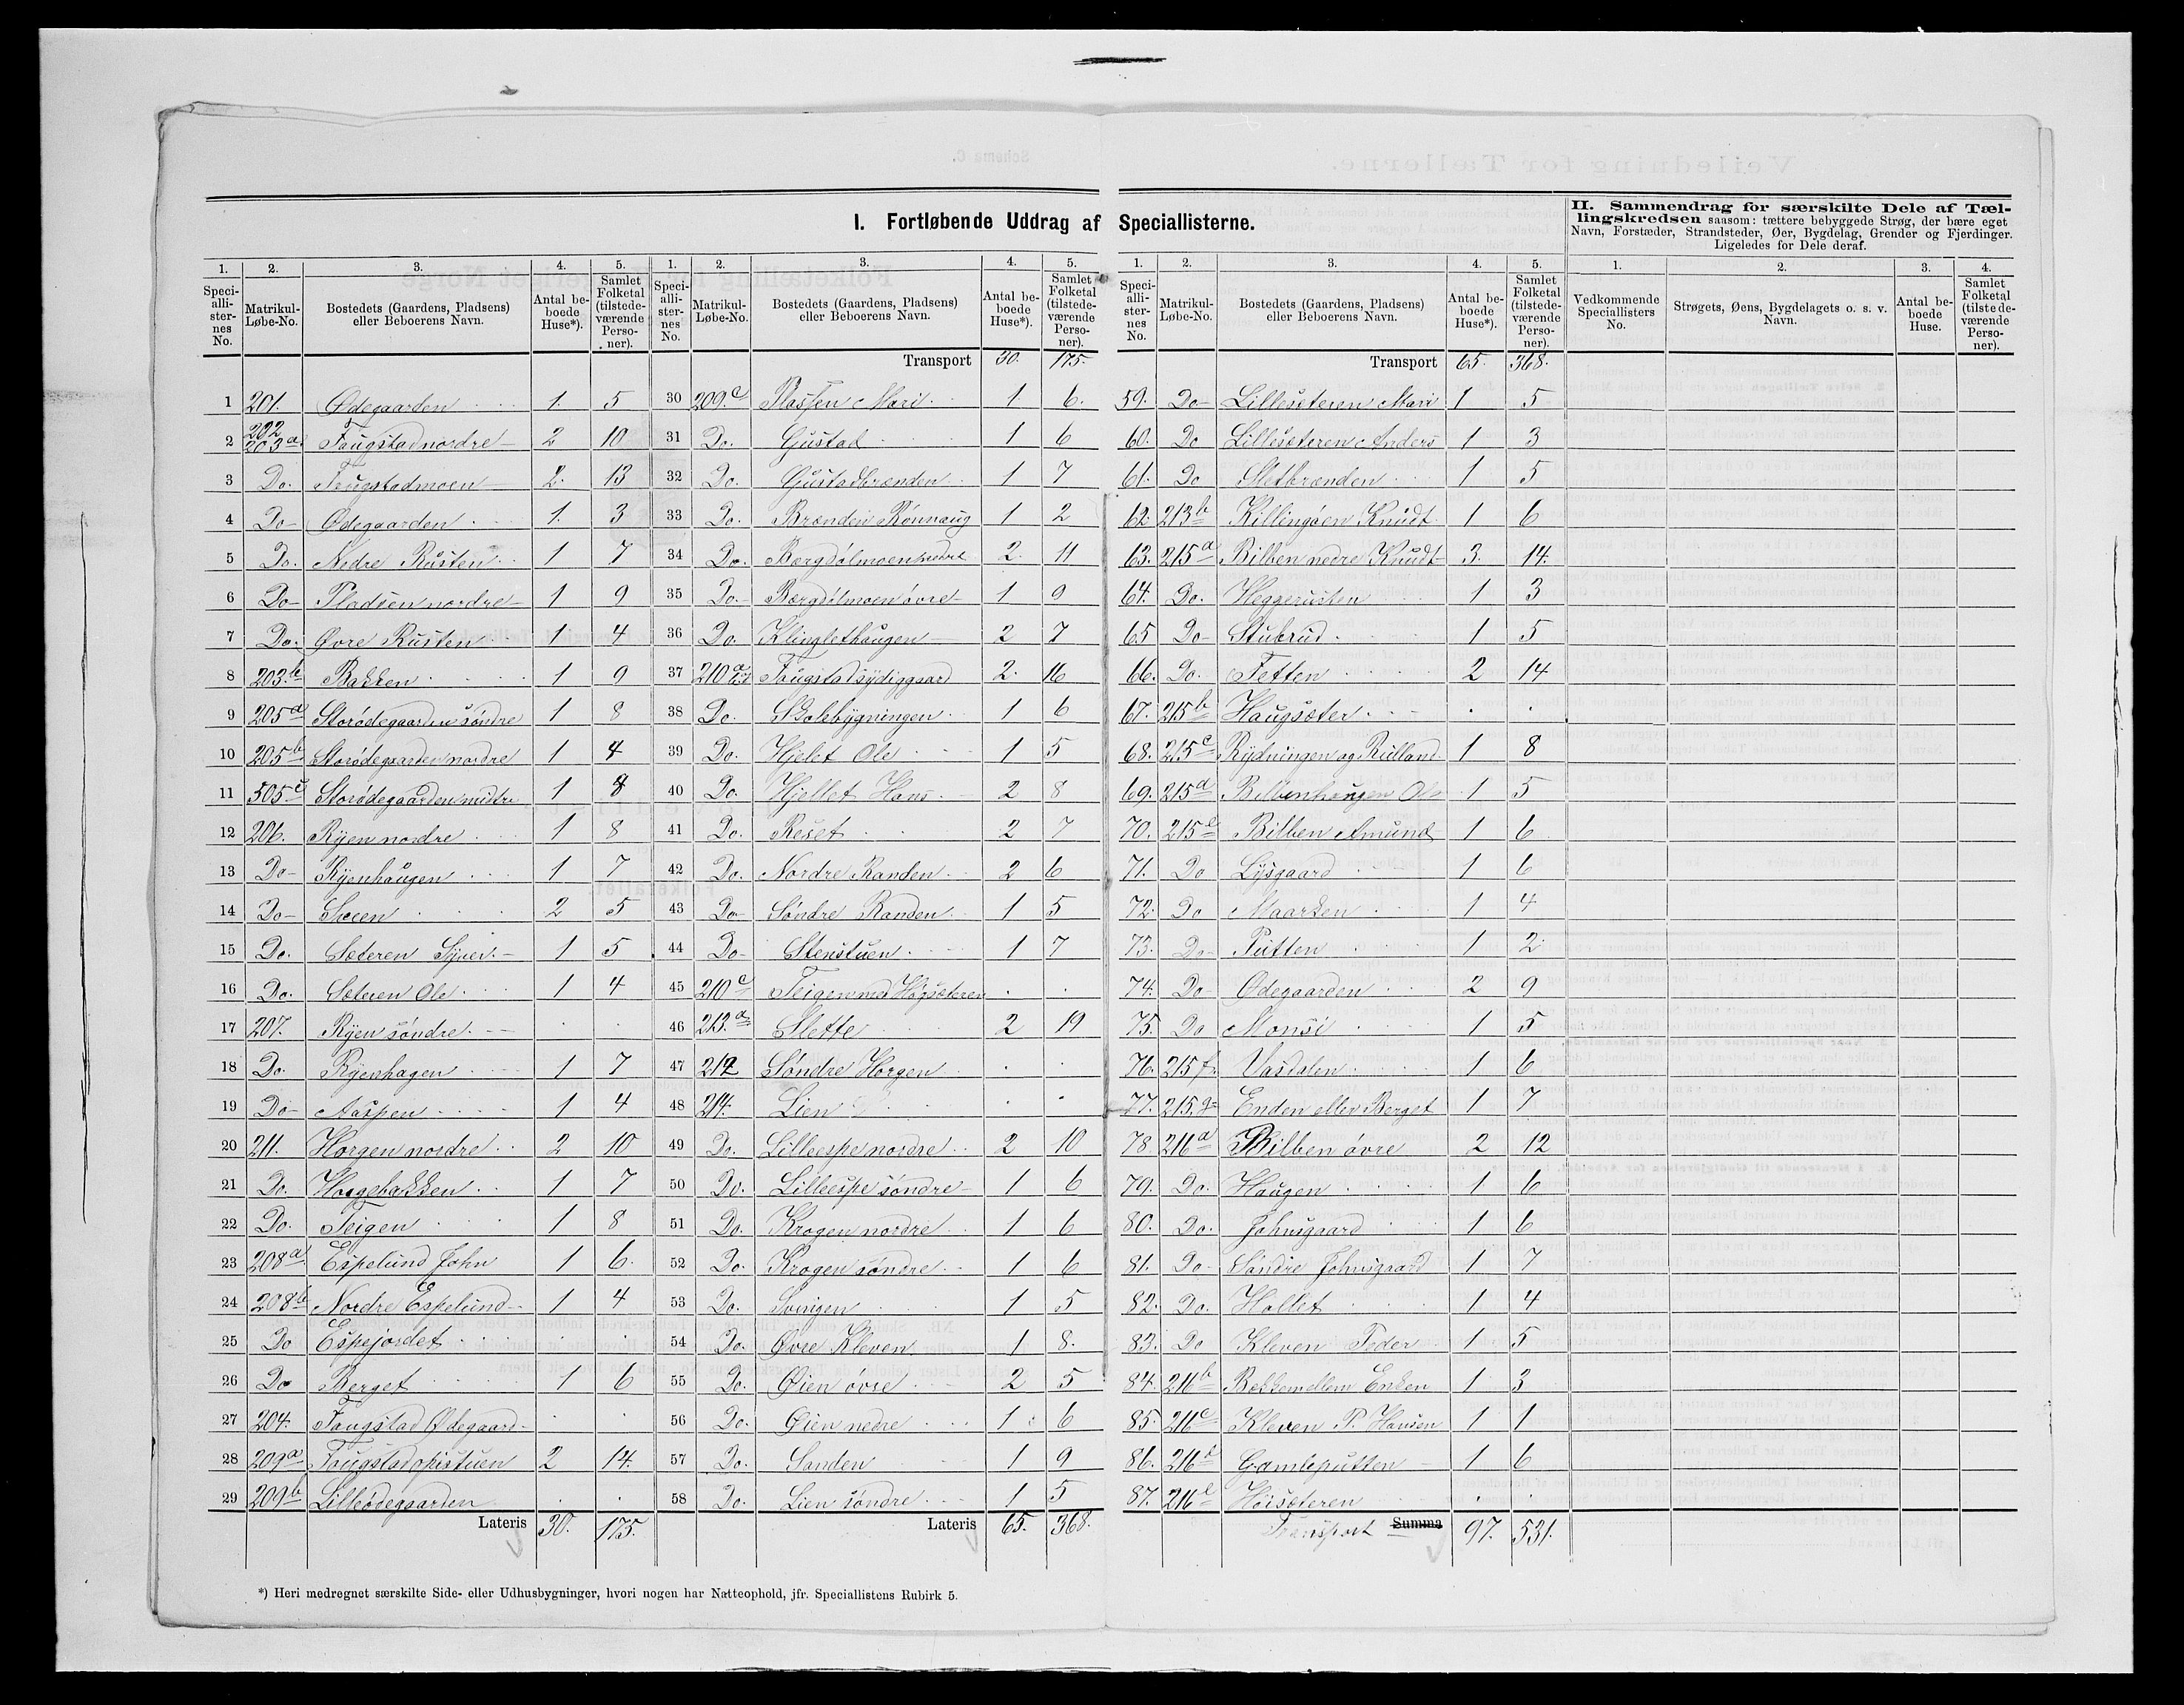 I. Fortløbende Uddrag af Speciallisterne.
II. Sammendrag for særskilte Dele af Tæl-
lingskredsen saasom: tættere bebyggede Strøg, der bære eget
Navn, Forstæder, Strandsteder, Øer, Bygdelag, Grender og Fjerdinger.
Ligeledes for Dele deraf.
1. 2. 3. 4. 5.
Speci-alli-ster-nes No. Matrikul-Løbe-No. Bostedets (Gaardens, Pladsens) eller Beboerens Navn. Antal be-boede Huse*). Samlet Folketal (tilstede-værende Perso-ner).
1 201. Ødegaarden 1. 5
2 202 203a Faugstad nordre 2 10
3 Do. Faugstadmoen 2. 13
4 Do Ødegaarden 1. 3
5 Do. Nedre Rusten 1 7
6 Do Pladsen nordre 1 9
7 Do. Øvre Rusten 1 4
8 203.b Bakken 1 9
9 205a Storødegaarden søndre 1 8
10 205b Storødegaarden nordre 1 4
11 505c Storødegaarden midtre 1 8
12 206. Ryen nordre 1 8
13 Do Ryenhaugen 1 7
14 Do 2 5
15 Do. Sæteren 1 5
16 Do. Sæteren Ole 1 4
17 207. Ryen søndre . .
18 Do. Ryenhagen 1 7
19 Do Aaspen 1 4
20 211. Horgen nordre 2 10
21 Do. Horgebakken 1 7
22 Do. Teigen 1 8
23 208a Espelund John 1 6.
24 208b Nordre Espelund 1 4
25 Do Espejordet . .
26 Do Berget 1 6
27 204. Faugstad Ødegaard . .
28 209a Faugstad opistuen 2 14.
29 209b Lilleødegaarden . .
Lateris 30. 175.
1. 2. 3. 4. 5.
Speci-alli-ster-nes No. Matrikul-Løbe-No. Bostedets (Gaardens, Pladsens) eller Beboerens Navn. Antal be-boede Huse*). Samlet Folketal (tilstede-værende Perso-ner).
Transport 30. 175.
30 209.c Plassen Mari 1 6.
31 Do. Gustad 1 6
32 Do. Gustadbrænden 1 7
33 Do. Brænden Rønnaug 1 2
34 Do. Bergdølmoen nedre 2. 11
35 Do. Bergdølmoen øvre 1 9
36 Do. Klinglethaugen 2 7
37 210a Faugstad sydiggaard 2. 16
38 Do. Skolebygningen 1 6
39 Do. Hjelet Ole 1 5
40 Do. Hjellet Hans 2 8
41 Do. Reset 2 7
42 Do. Nordre Randen 2 6
43 Do Søndre Randen 1 5
44 Do Stenstuen 1 7
45 210c Teigen med Høgsæteren . .
46 213.a Slette 2 19
47 212 Søndre Horgen . .
48 214. Lien . .
49 Do. Lilleespe nordre 2 10
50 Do. Lilleespe søndre 1 6
51 Do. Krogen nordre 1 6
52 Do. Krogen søndre 1 6
53 Do. Svingen 1 5
54 Do. Øvre Kleven 1 8.
55 Do. Øien øvre 2 5
56 Do. Øien nedre 1 6
57 Do. Sanden 1 9
58 Do. Lien søndre 1 5
Lateris 65. 368.
1. 2. 3. 4. 5.
Speci-alli-ster-nes No. Matrikul-Løbe-No. Bostedets (Gaardens, Pladsens) eller Beboerens Navn. Antal be-boede Huse*). Samlet Folketal (tilstede-værende Perso-ner).
Transport 65. 368.
59. Do Lillesæteren Mari 1 5
60. Do Lillesæteren Anders 1 3
61. Do Sletbrænden 1 5
62 213b Killingøen Knudt 1 6
63. 215a Bilben nedre Knudt 3. 14.
64. Do. Heggerusten 1 3
65 Do Stubrud 1 5
66. Do. Tetten 2 14
67. 215b Haugsæter . .
68. 215c Rydningen og Rulland 1 8
69. 215d Bilbenhaugen Ole 1 5
70. 215e Bilben Amund 1 6
71. Do Lysgaard 1 6
72. Do Maarken 1 4
73. Do Putten 1 2
74. Do Ødegaarden 2 9
75. Do Monsi 1 5
76. 215f Vasdalen 1 6
77. 215.g Enden eller Berget 1 7
78. 216a Bilben øvre 2 12
79. Do. Haugen 1 6
80. Do. Johnsgaard 1 6
81. Do Søndre Johnsgaard 1 7
82. Do. Hollet 1 4
83. Do Kleven Peder 1 5
84. 216b Bekkemellem Enken 1 3
85. 216c Kleven P. Hansen 1 1
86. 216d Gamleputten 1 6
87. 216e Høisæteren . .
Transport Summa 97. 531.
1. 2. 3. 4.
Vedkommende Speciallisters No. Strøgets, Øens, Bygdelagets o. s. v. Navn. Antal be-boede Huse. Samlet Folketal (tilstede-værende Perso-ner).
*) Heri medregnet særskilte Side- eller Udhusbygninger, hvori nogen har Natteophold, jfr. Speciallistens Rubirk 5.